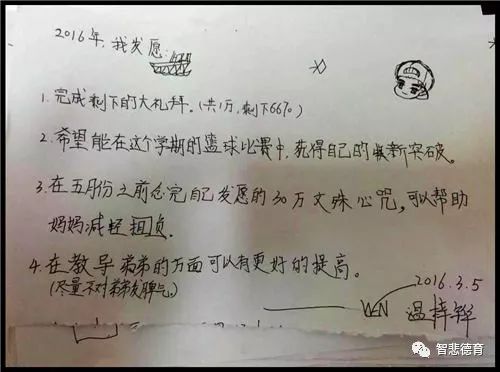 2016年,我发愿:
1.完成剩下的大礼拜。(共1万,剩下66%)
2.希望能在这个学期的篮球比赛中,获得自己的最新突破。
3.在五月份之前念完自己发愿的30万文殊心咒,可以帮助
妈妈减轻担负。
4.在教导弟弟的方面可以有更好的提高。
(尽量不对弟弟发脾气。)
2016.3.5
WEN 温梓铧
智悲德育